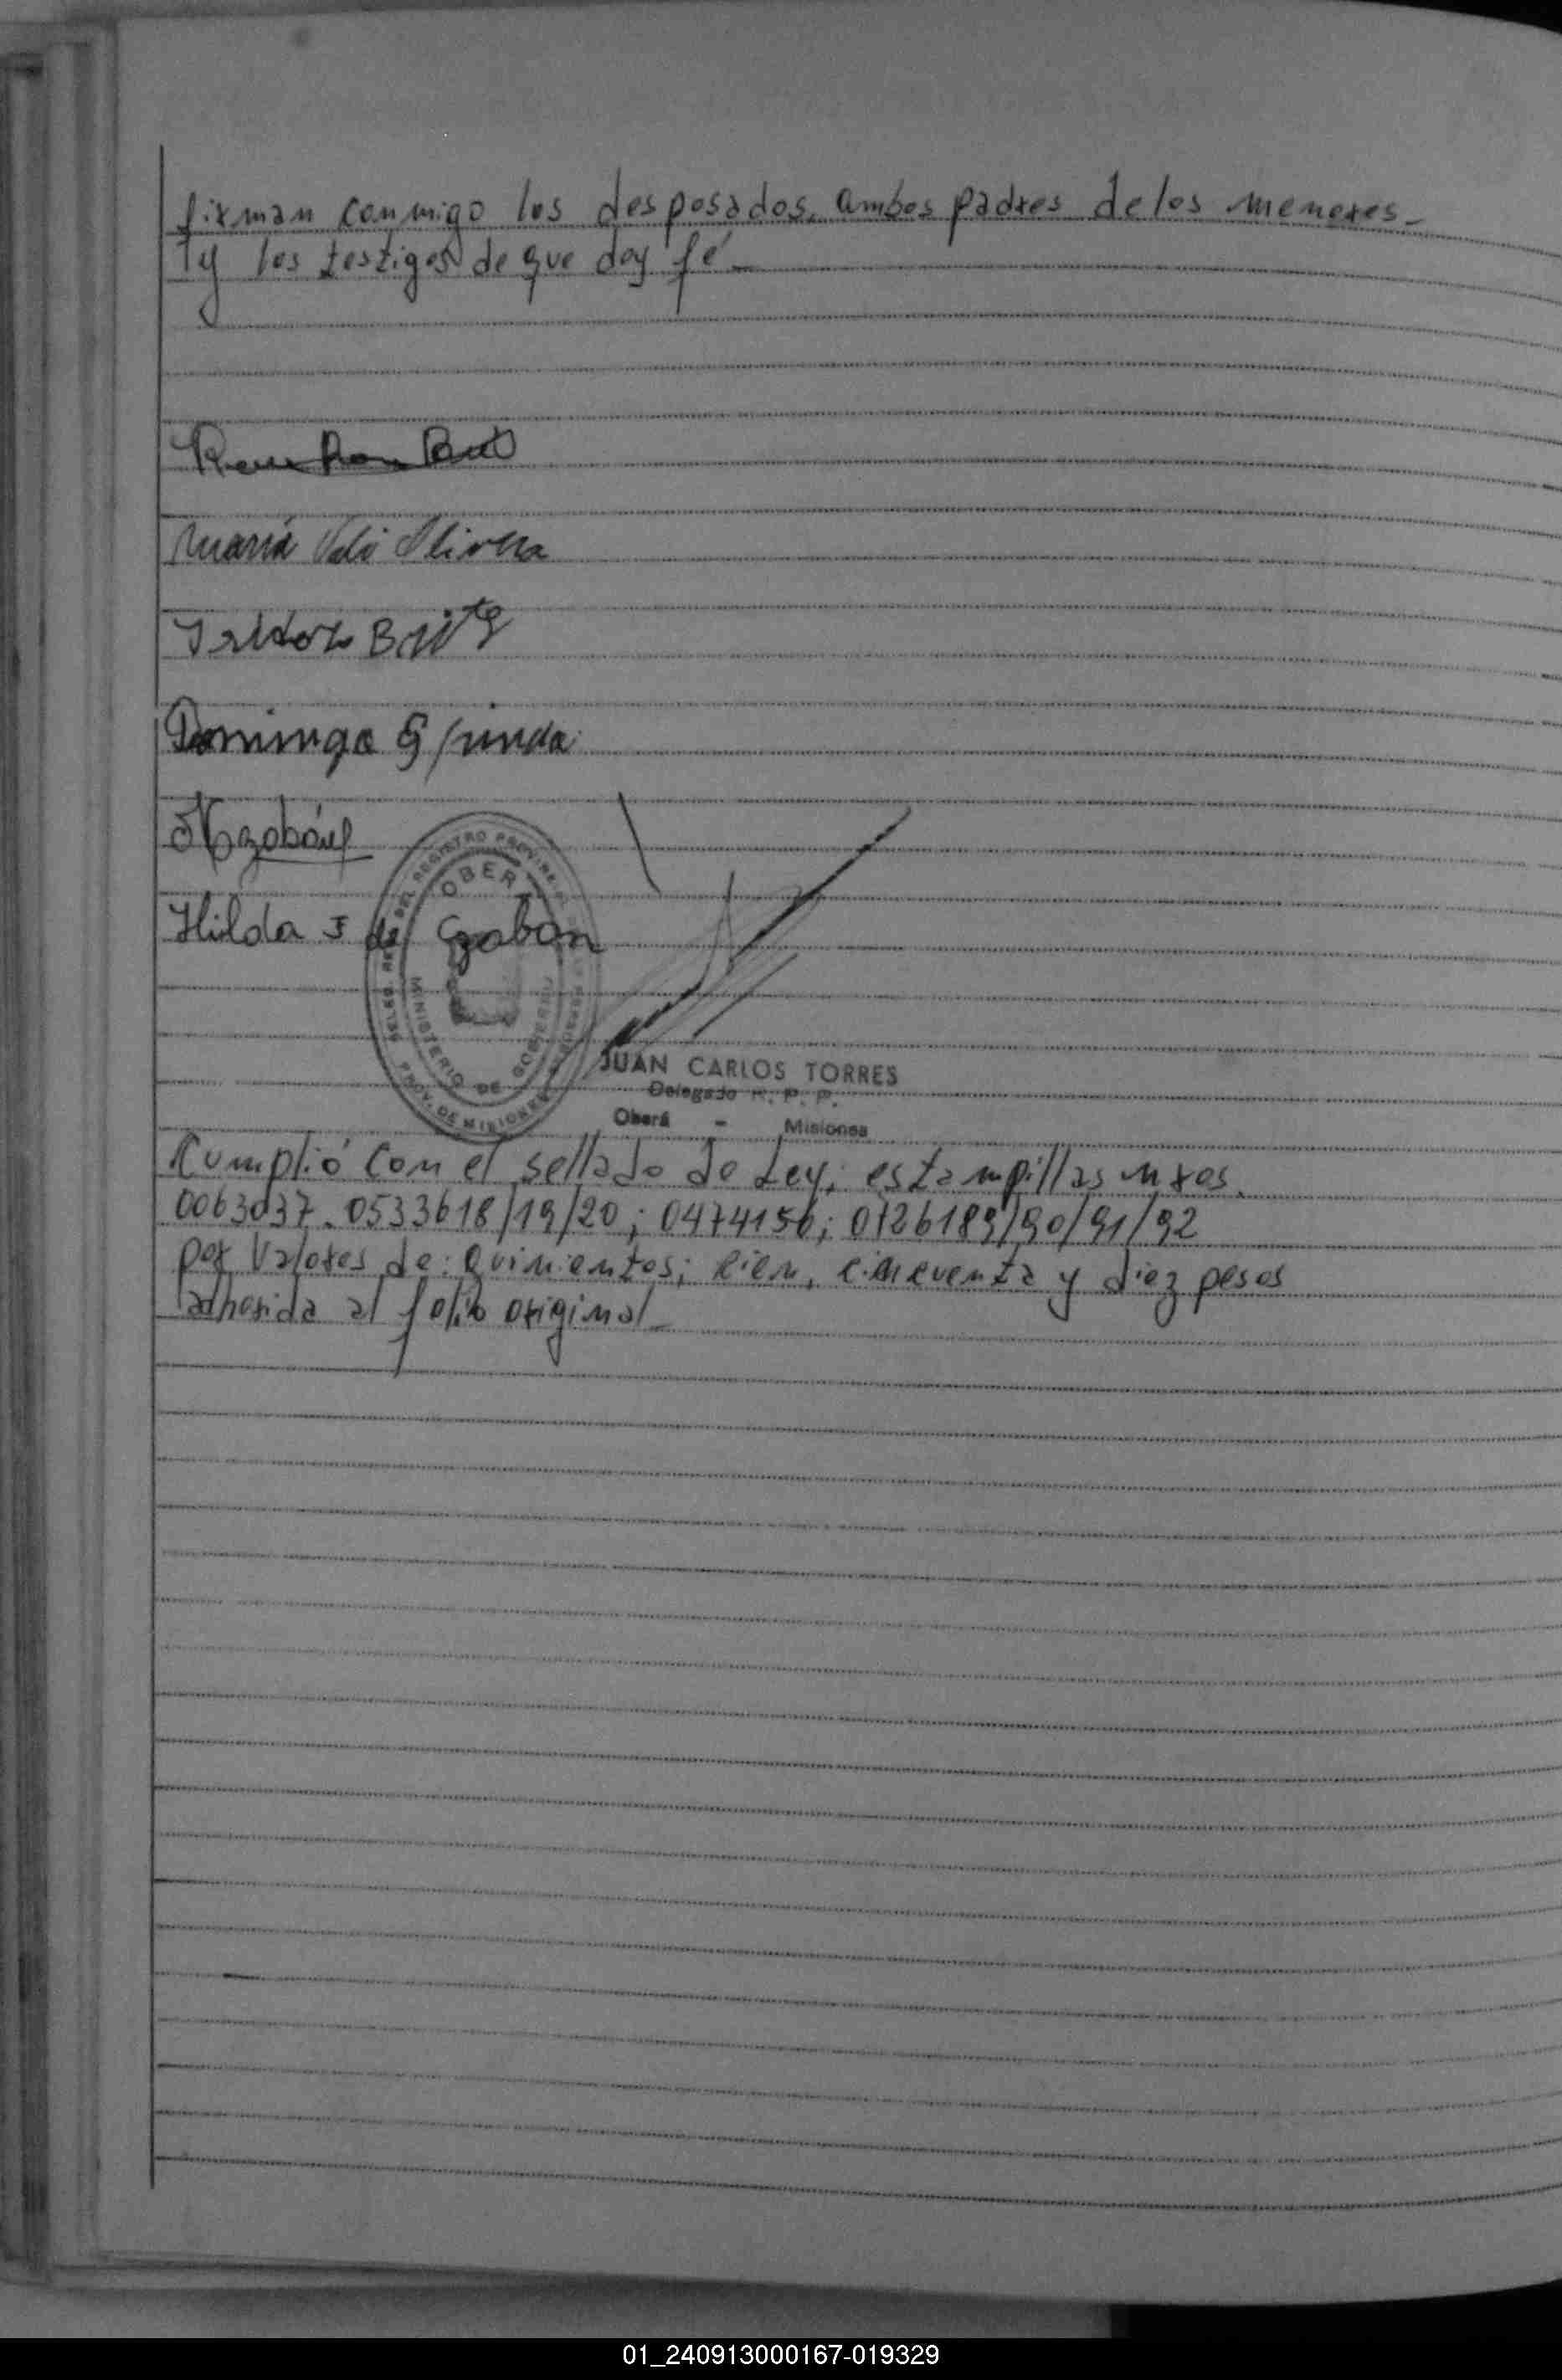 firman conmigo los desposados, ambos padres de los menores-
y los testigos de que doy fé-
María Oliveira
Domingo
Hilda de Czaban
OBERA
MINISTERIO DE GOBIERNO
PROV. DE MISIONES
JUAN CARLOS TORRES
Delegado R. P. P.
Oberá - Misiones
Cumplió con el sellado de Ley; estampillas nros.
0063037. 0533618/19/20; 0474156; 0126189/90/91/92
por valores de: quinientos; cien, cincuenta y diez pesos
adherida al folio original-
01_240913000167-019329